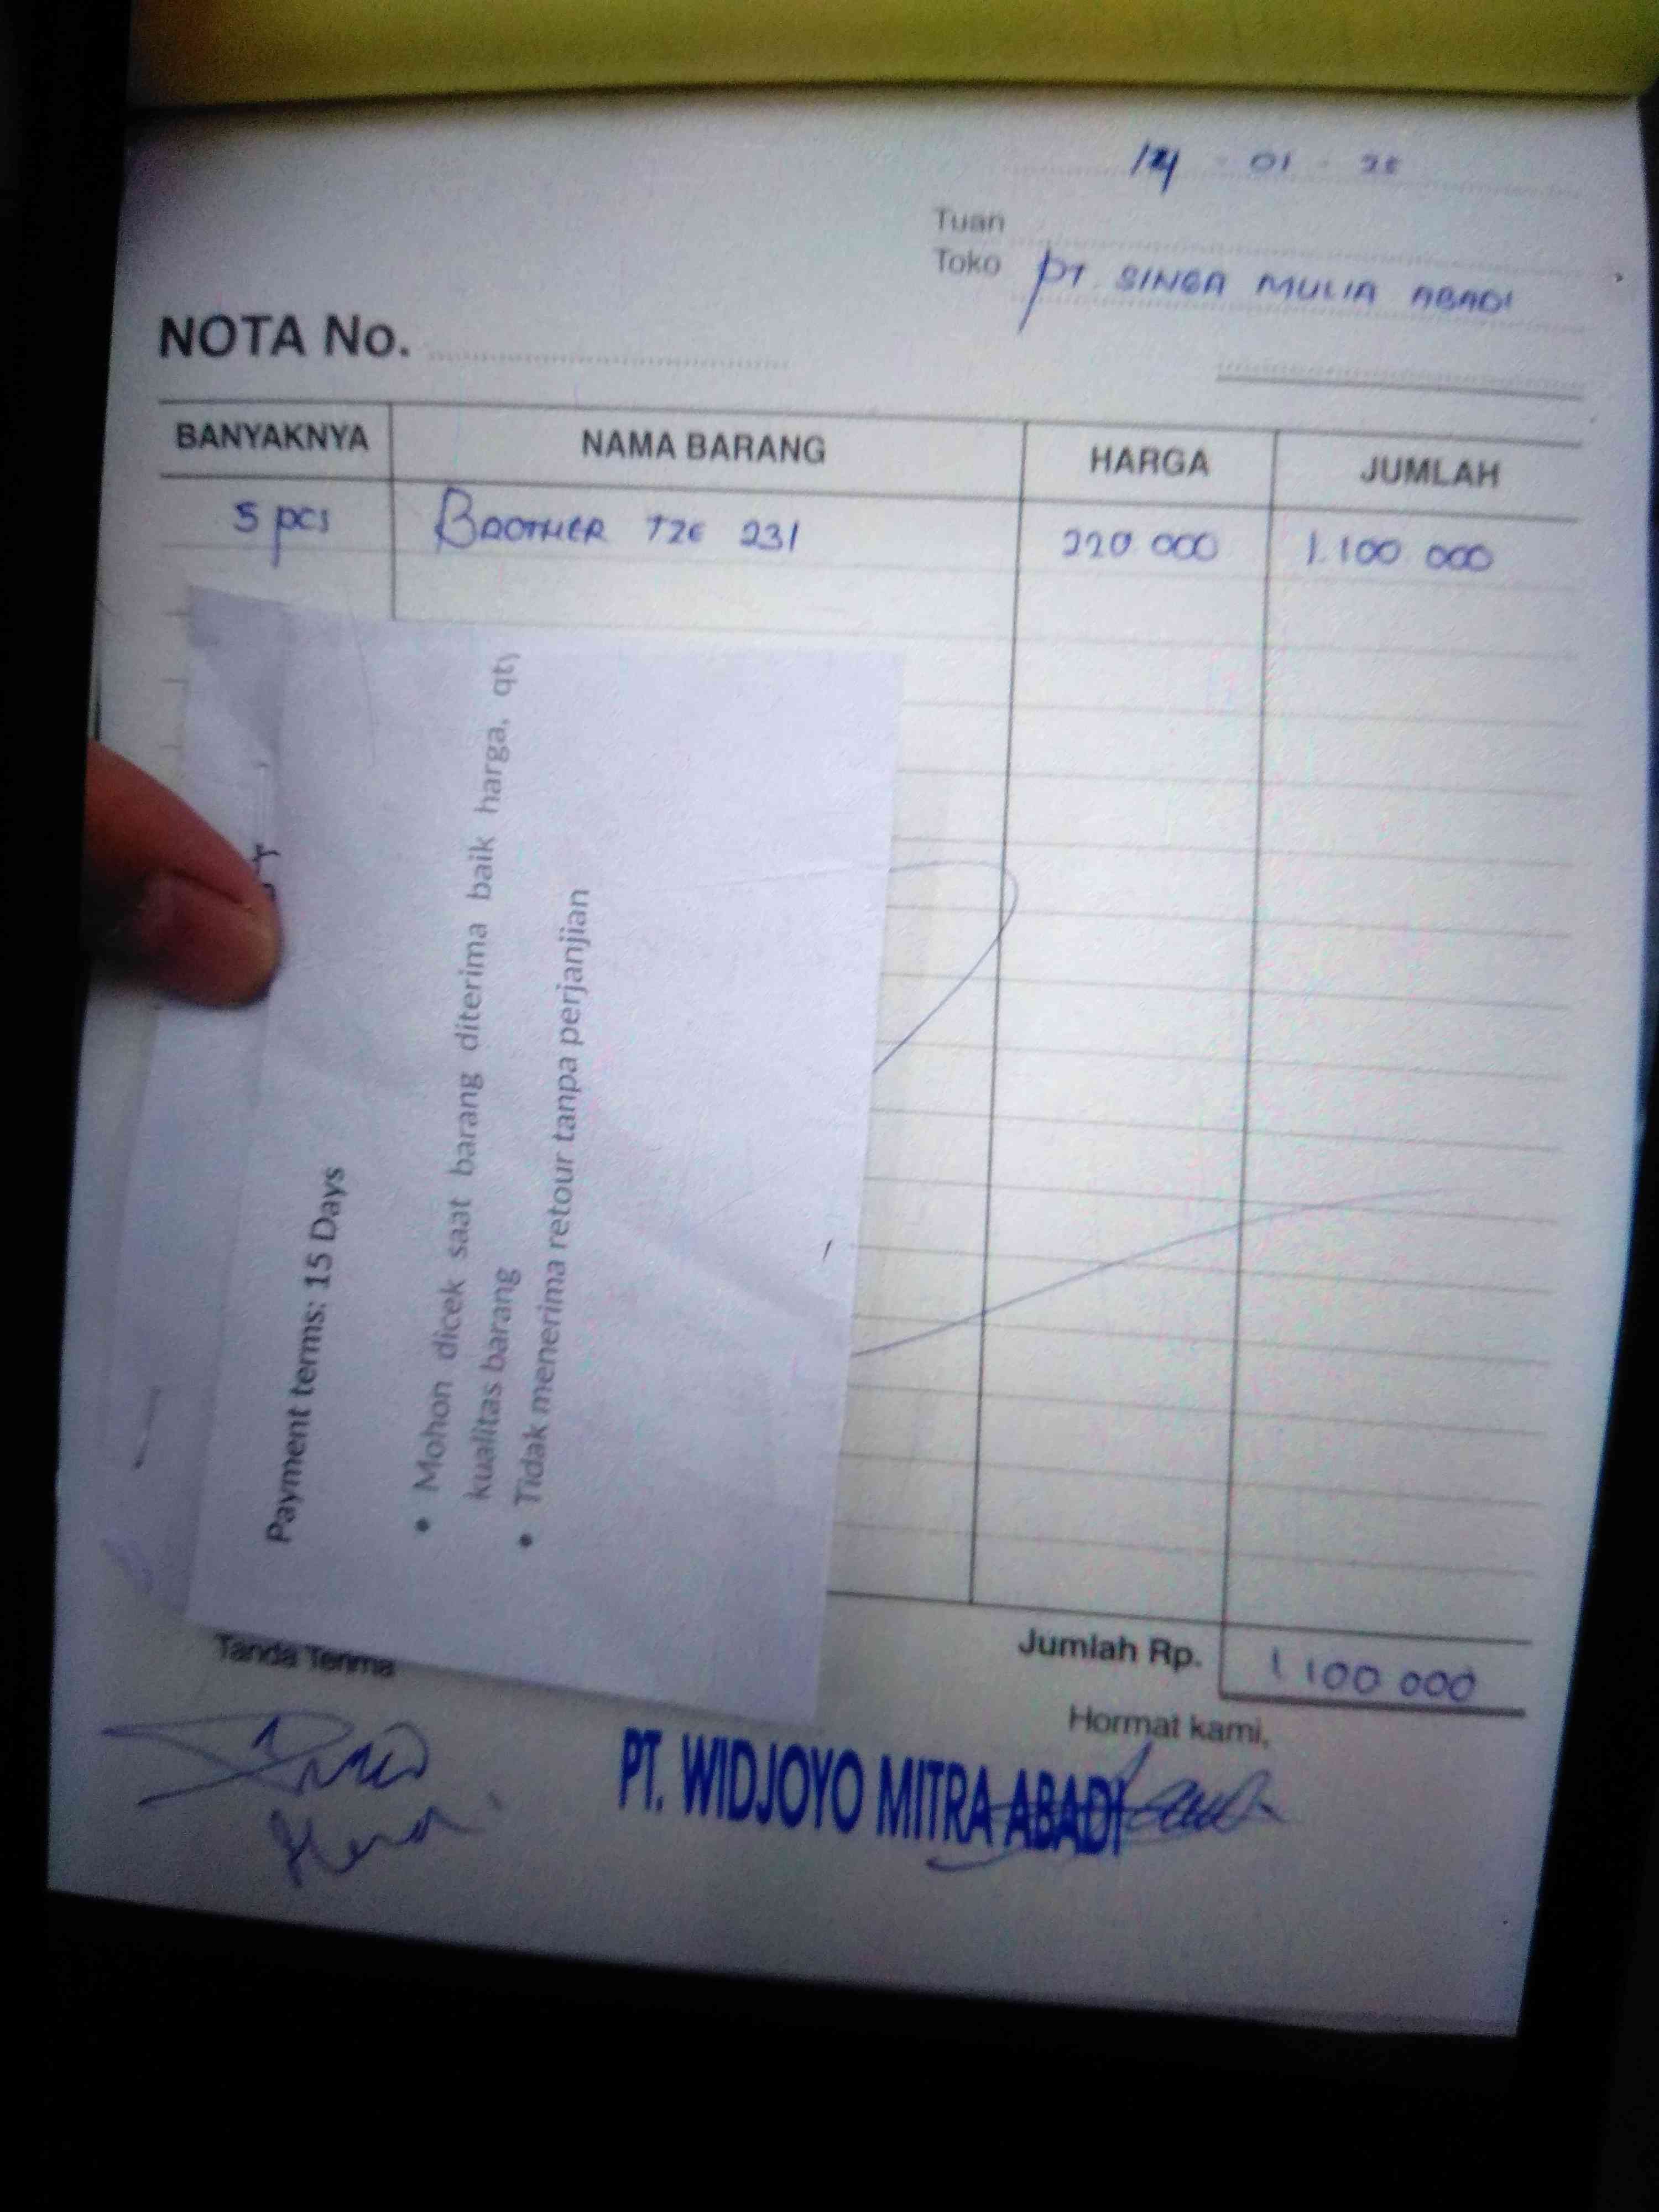 14 - 01 - 26
Tuan
Toko PT. SINGA MULIA ABADI
NOTA No.
BANYAKNYA NAMA BARANG HARGA JUMLAH
5 pcs BROTHER TZE 231 220 000 1.100 000
Payment terms: 15 Days
• Mohon dicek saat barang diterima baik harga, qty
kualitas barang
• Tidak menerima retour tanpa perjanjian
Jumlah Rp. 1 100 000
Tanda Terima
Hormat kami,
PT. WIDJOYO MITRA ABADI